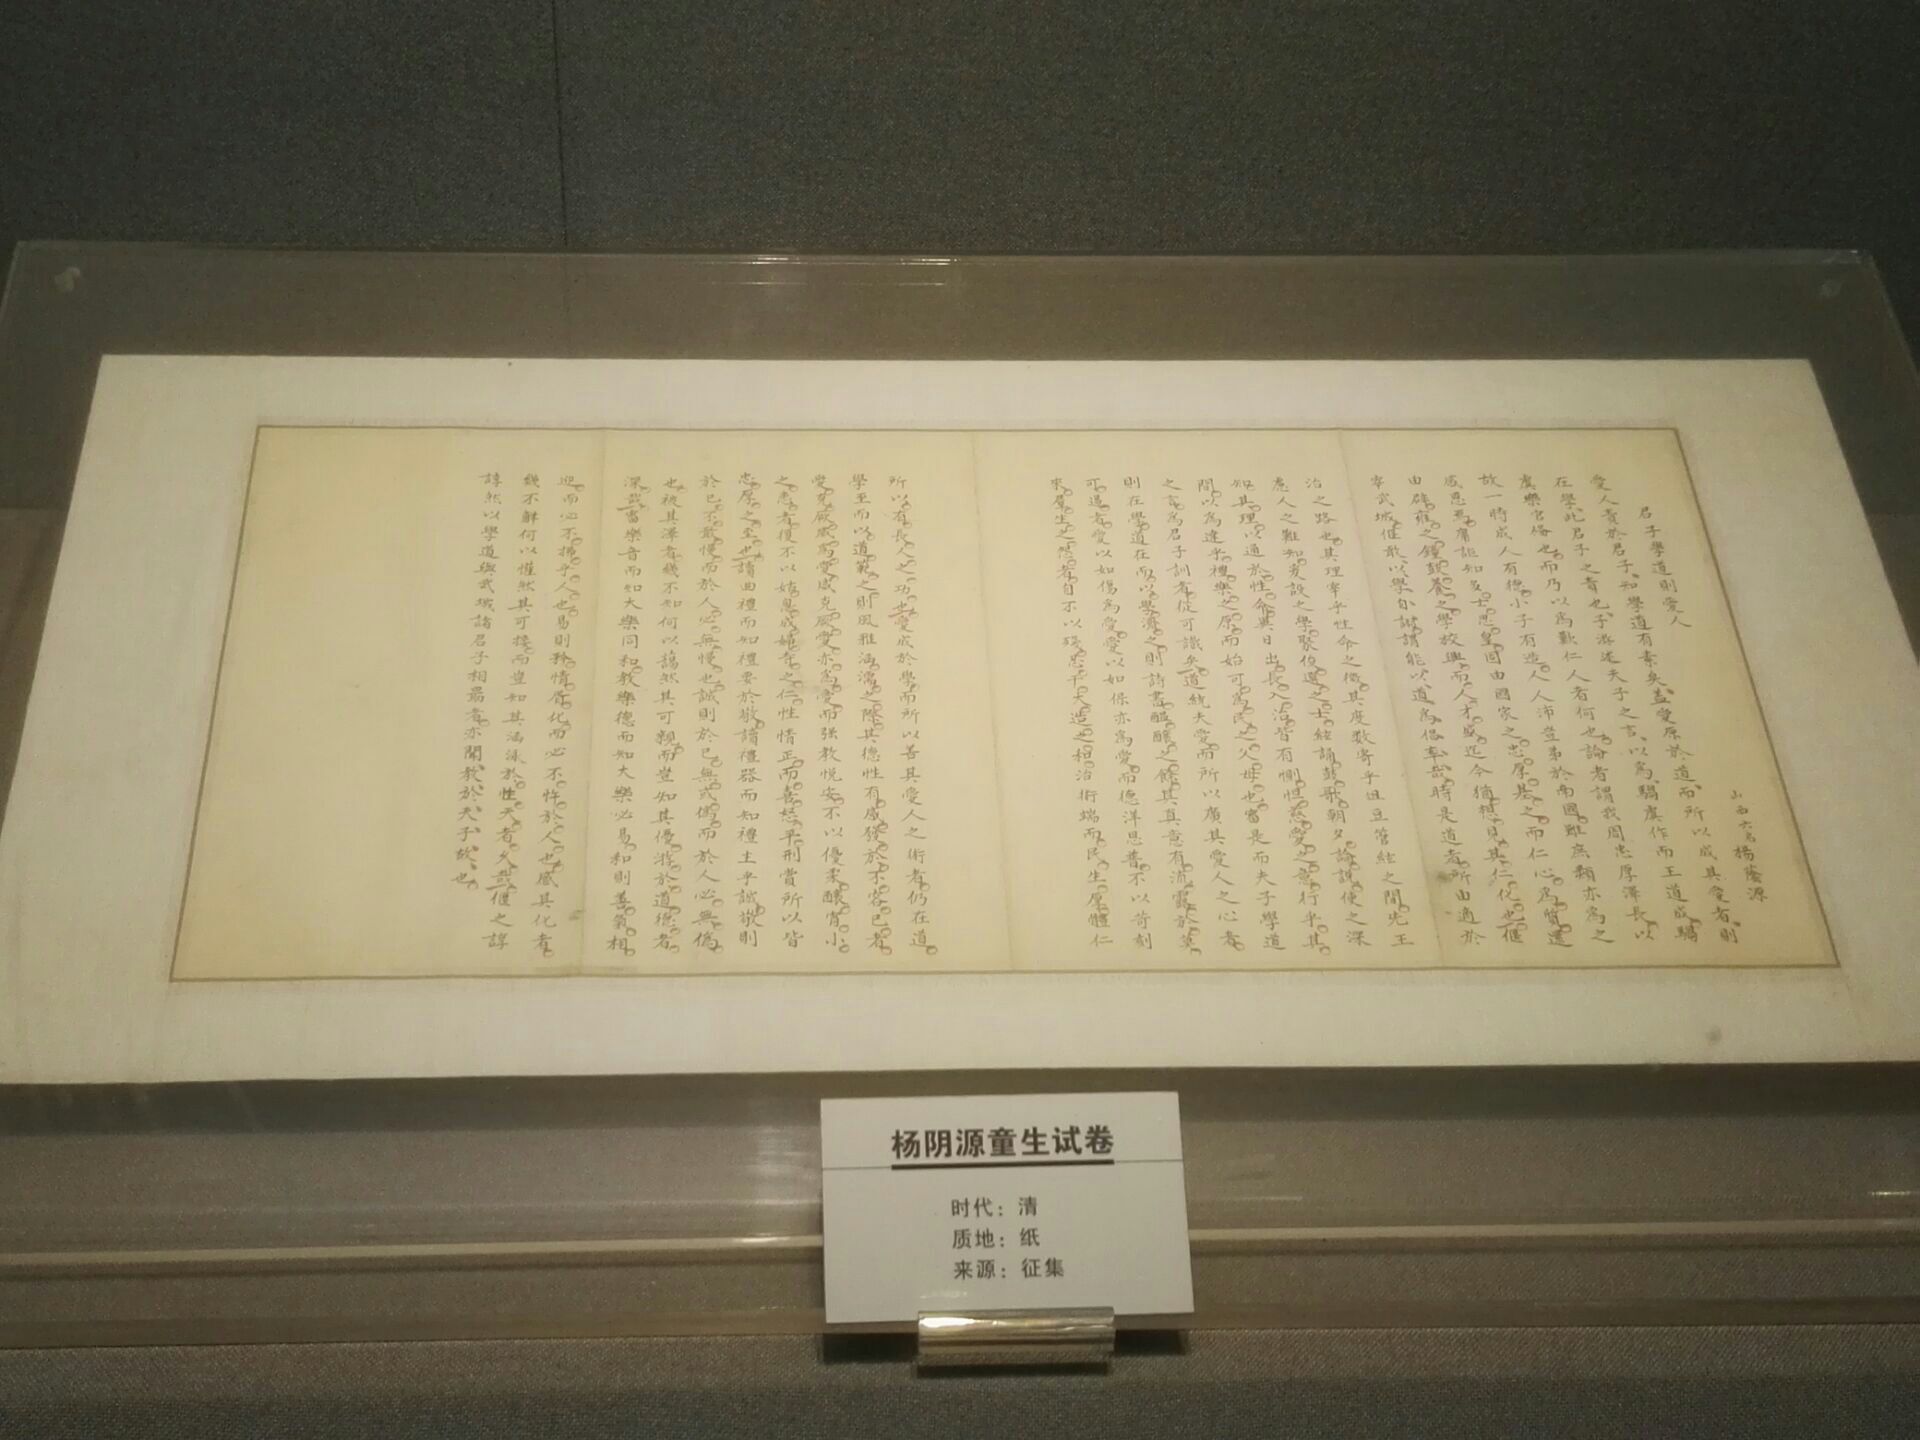 山西六名楊蔭源
君子學道則愛人
愛人責於君子知學道有素矣蓋愛原於道而所以成其愛者則
在學此君子之責也子游述夫子之言以為騶虞作而王道成騶
虞樂官備也而乃以為歎仁人者何也論者謂我周忠厚澤長以
故一時成人有德小子有造人人沛豈弟於南國雖庶類亦為之
感恩焉庸詎知多士思皇固由國家之忠厚基之而仁心為質還
由辟雍之鐘鼓養之學校興而人才盛迄今猶想見其仁化也偃
宰武城偃敢以學自謝謂能以道為倡率哉時是道者所由適於
治之路也其理宰乎性命之微其度數寄乎俎豆管絃之間先王
慮人之難知爰設之學聚俊選之士絃誦鼓歌朝夕論說使之深
知其理以通於性命異日出長入治皆有惻怛慈愛之意行乎其
間以為達乎禮樂之原而始可為民之父母也當是而夫子學道
之言為君子訓者從可識矣道統夫愛而所以廣其愛人之心者
則在學道在而以學濟之則詩書醞釀之餘其真意有流露於莫
可遏者愛以如傷為愛愛以如保亦為愛而德洋恩普不以苛刻
來羣生之怨者自不以殘忍干大造之和治術端而民生厚體仁
所以有長人之功也愛成於學而所以善其愛人之術者仍在道
學至而以道範之則風雅涵濡之際其德性有感發於不容已者
愛克厥威為愛威克厥愛亦為愛而強教悅安不以優柔釀宵小
之患者復不以姑息成婦寺之仁性情正而喜怒平刑賞所以皆
忠厚之至也讀曲禮而知禮要於敬讀禮器而知禮主乎誠敬則
於己不敢慢而於人必無慢也誠則於己無或偽而於人必無偽
也被其澤者幾不知何以藹然其可親而豈知其優游於道德者
深哉審樂音而知大樂同和教樂德而知大樂必易和則善氣相
迎而必不拂乎人也易則矜情胥化而必不忤於人也感其化者
幾不解何以懽然其可接而豈知其涵泳於性天者久哉偃之諄
諄然以學道與武城諸君子相勗者亦聞教於夫子故也
杨阴源童生试卷
时代：清
质地：纸
来源：征集